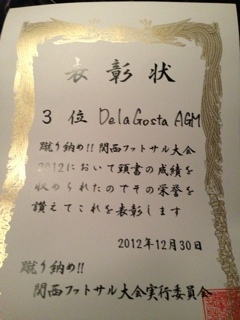 表彰状
3 位 DelaGosta AGM
蹴り納め!!関西フットサル大会
2012において頭書の成績を
収められたのでその栄誉を
讃えてこれを表彰します
2012年12月30日
蹴り納め!!
関西フットサル大会実行委員会